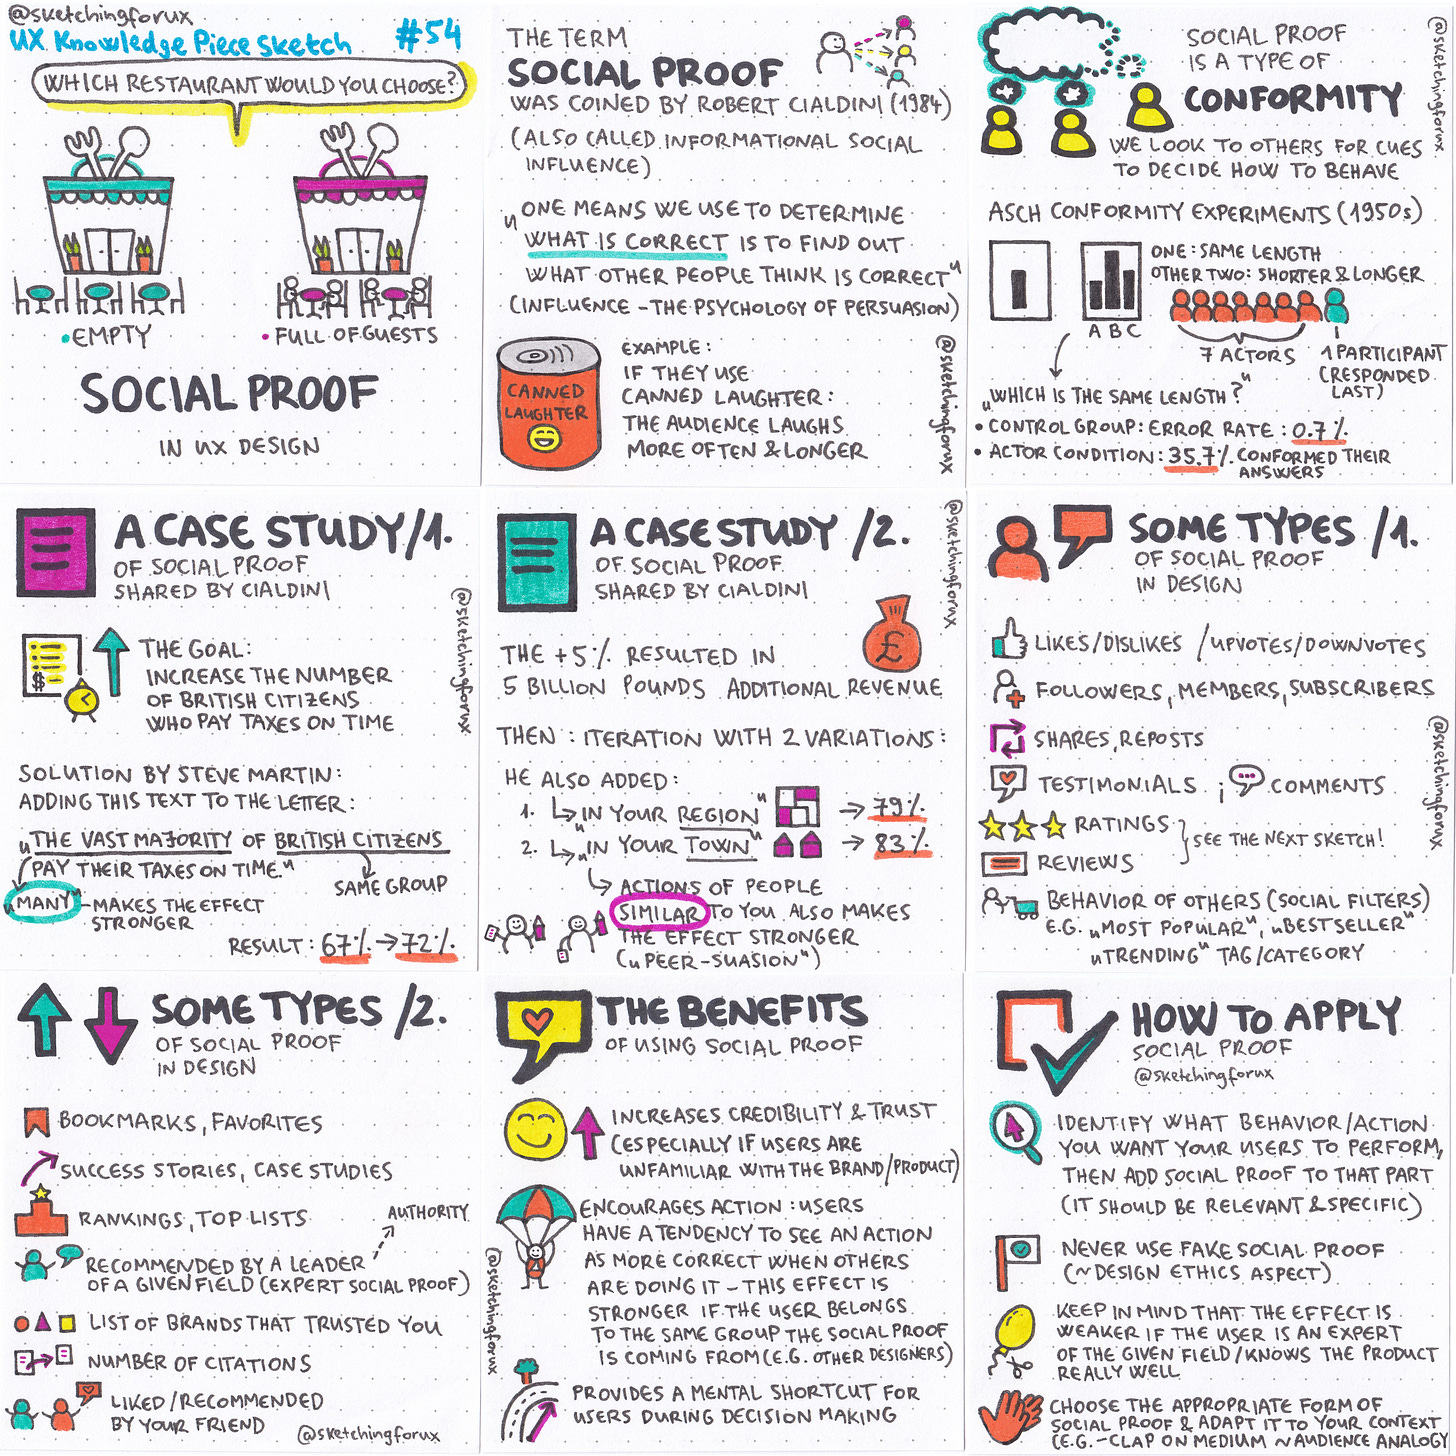 @sketchingforux
UX Knowledge Piece Sketch #54
WHICH RESTAURANT WOULD YOU CHOOSE?
•EMPTY
•FULL OF GUESTS
SOCIAL PROOF
IN UX DESIGN
THE TERM
SOCIAL PROOF
WAS COINED BY ROBERT CIALDINI (1984)
(ALSO CALLED INFORMATIONAL SOCIAL
INFLUENCE)
„ONE MEANS WE USE TO DETERMINE
WHAT IS CORRECT IS TO FIND OUT
WHAT OTHER PEOPLE THINK IS CORRECT"
(INFLUENCE – THE PSYCHOLOGY OF PERSUASION)
CANNED
LAUGHTER
EXAMPLE:
IF THEY USE
CANNED LAUGHTER:
THE AUDIENCE LAUGHS
MORE OFTEN & LONGER
@sketchingforux
SOCIAL PROOF
IS A TYPE OF
CONFORMITY
WE LOOK TO OTHERS FOR CUES
TO DECIDE HOW TO BEHAVE
@sketchingforux
ASCH CONFORMITY EXPERIMENTS (1950s)
ONE: SAME LENGTH
OTHER TWO: SHORTER & LONGER
A B C
7 ACTORS
1 PARTICIPANT
(RESPONDED
LAST)
„WHICH IS THE SAME LENGTH?"
• CONTROL GROUP: ERROR RATE: 0.7%
• ACTOR CONDITION: 35.7% CONFORMED THEIR
ANSWERS
A CASE STUDY/1.
OF SOCIAL PROOF
SHARED BY CIALDINI
@sketchingforux
$
THE GOAL:
INCREASE THE NUMBER
OF BRITISH CITIZENS
WHO PAY TAXES ON TIME
SOLUTION BY STEVE MARTIN:
ADDING THIS TEXT TO THE LETTER:
„THE VAST MAJORITY OF BRITISH CITIZENS
PAY THEIR TAXES ON TIME."
SAME GROUP
„MANY" – MAKES THE EFFECT
STRONGER
RESULT: 67% → 72%
A CASE STUDY /2.
OF SOCIAL PROOF
SHARED BY CIALDINI
@sketchingforux
£
THE +5% RESULTED IN
5 BILLION POUNDS ADDITIONAL REVENUE
THEN: ITERATION WITH 2 VARIATIONS:
HE ALSO ADDED:
1. „IN YOUR REGION" → 79%
2. „IN YOUR TOWN" → 83%
ACTIONS OF PEOPLE
SIMILAR TO YOU ALSO MAKES
THE EFFECT STRONGER
(„PEER-SUASION")
SOME TYPES /1.
OF SOCIAL PROOF
IN DESIGN
LIKES/DISLIKES /UPVOTES/DOWNVOTES
FOLLOWERS, MEMBERS, SUBSCRIBERS
SHARES, REPOSTS
TESTIMONIALS ; COMMENTS
RATINGS
REVIEWS
SEE THE NEXT SKETCH!
@sketchingforux
BEHAVIOR OF OTHERS (SOCIAL FILTERS)
E.G. „MOST POPULAR", „BESTSELLER"
„TRENDING" TAG/CATEGORY
SOME TYPES /2.
OF SOCIAL PROOF
IN DESIGN
BOOKMARKS, FAVORITES
SUCCESS STORIES, CASE STUDIES
RANKINGS, TOP LISTS
AUTHORITY
RECOMMENDED BY A LEADER
OF A GIVEN FIELD (EXPERT SOCIAL PROOF)
LIST OF BRANDS THAT TRUSTED YOU
NUMBER OF CITATIONS
LIKED/RECOMMENDED
BY YOUR FRIEND
@sketchingforux
THE BENEFITS
OF USING SOCIAL PROOF
INCREASES CREDIBILITY & TRUST
(ESPECIALLY IF USERS ARE
UNFAMILIAR WITH THE BRAND/PRODUCT)
ENCOURAGES ACTION: USERS
HAVE A TENDENCY TO SEE AN ACTION
AS MORE CORRECT WHEN OTHERS
ARE DOING IT – THIS EFFECT IS
STRONGER IF THE USER BELONGS
TO THE SAME GROUP THE SOCIAL PROOF
IS COMING FROM (E.G. OTHER DESIGNERS)
@sketchingforux
PROVIDES A MENTAL SHORTCUT FOR
USERS DURING DECISION MAKING
HOW TO APPLY
SOCIAL PROOF
@sketchingforux
IDENTIFY WHAT BEHAVIOR/ACTION
YOU WANT YOUR USERS TO PERFORM,
THEN ADD SOCIAL PROOF TO THAT PART
(IT SHOULD BE RELEVANT & SPECIFIC)
NEVER USE FAKE SOCIAL PROOF
(~DESIGN ETHICS ASPECT)
KEEP IN MIND THAT THE EFFECT IS
WEAKER IF THE USER IS AN EXPERT
OF THE GIVEN FIELD/KNOWS THE PRODUCT
REALLY WELL
CHOOSE THE APPROPRIATE FORM OF
SOCIAL PROOF & ADAPT IT TO YOUR CONTEXT
(E.G. – CLAP ON MEDIUM ~ AUDIENCE ANALOGY)